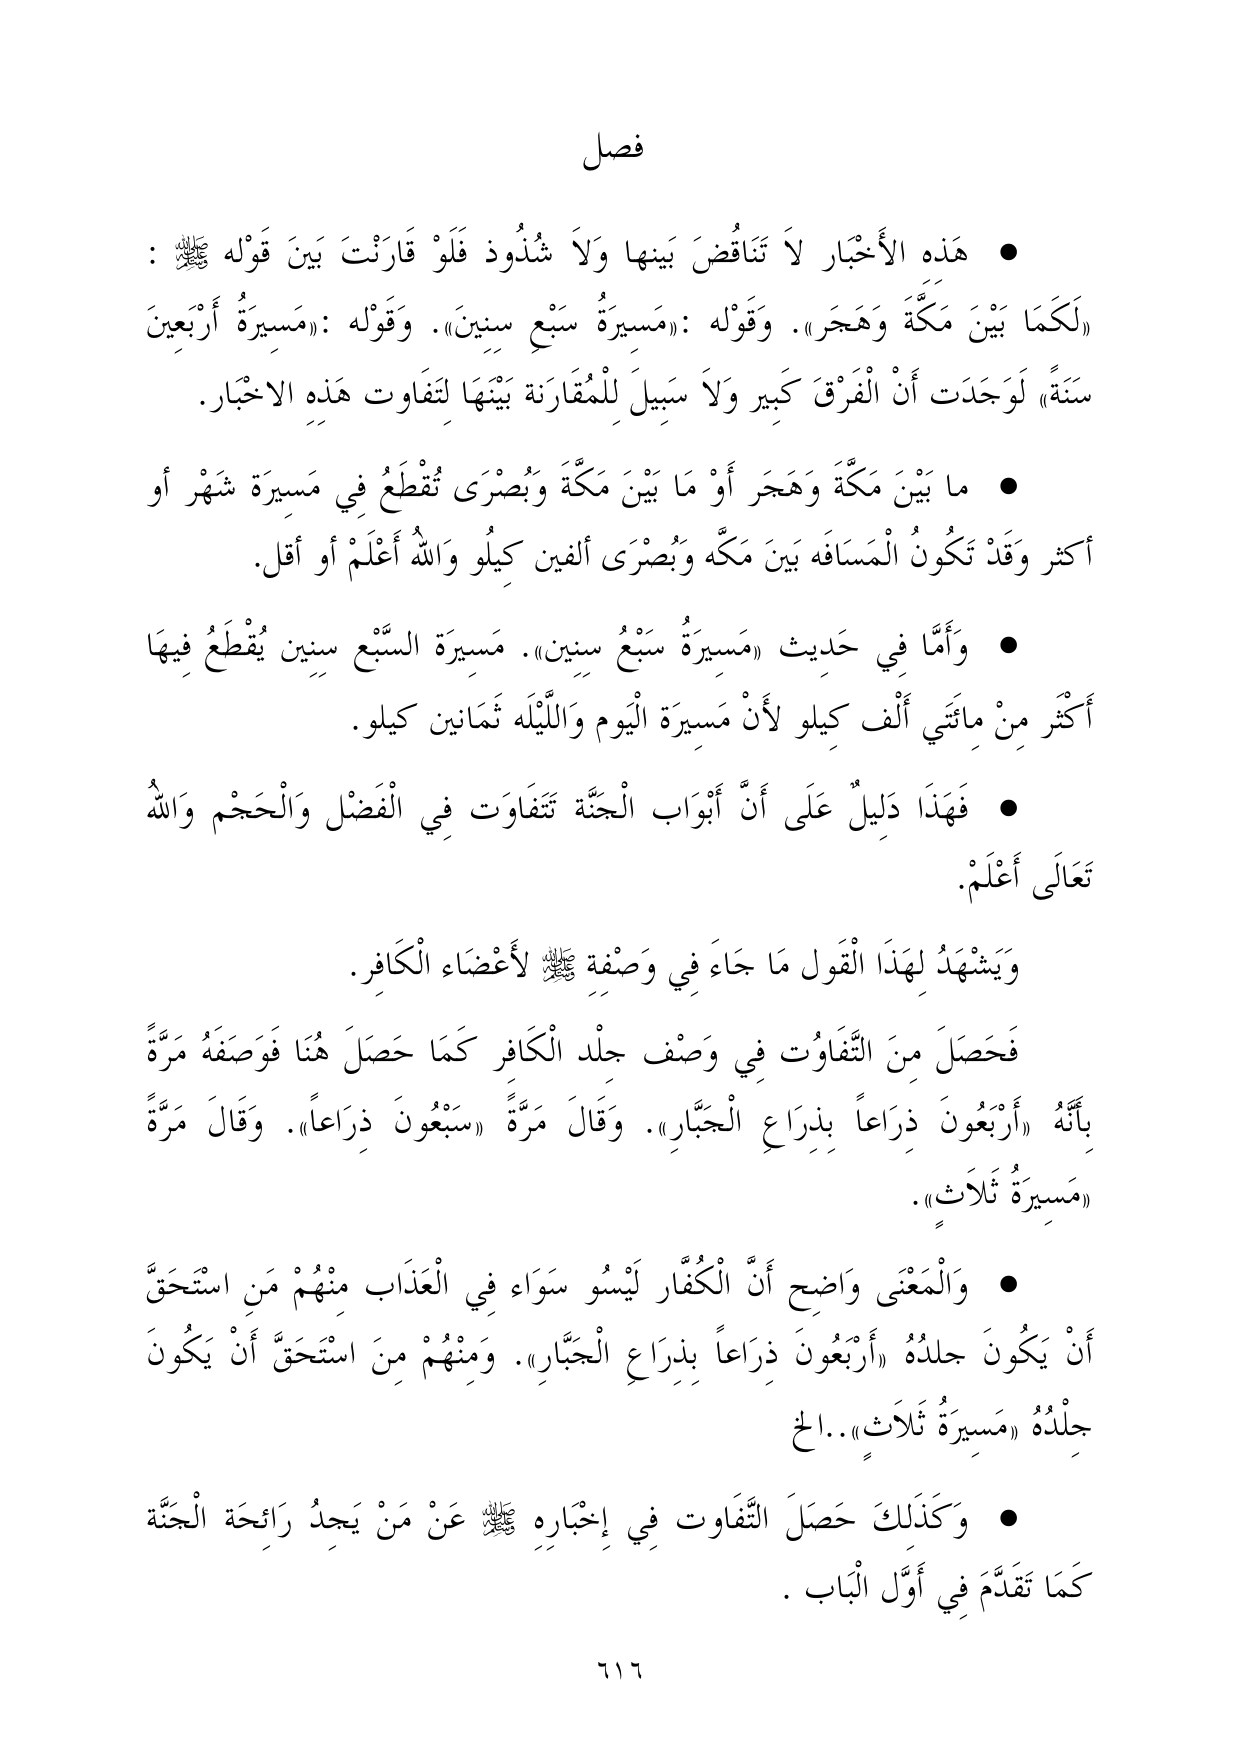 فصل
● هَذِهِ الأَخْبَار لاَ تَنَاقُضَ بَينها وَلاَ شُذُوذ فَلَوْ قَارَنْتَ بَينَ قَوْله ﷺ :
«لَكَمَا بَيْنَ مَكَّةَ وَهَجَر». وَقَوْله :«مَسِيرَةُ سَبْعِ سِنِينَ». وَقَوْله :«مَسِيرَةُ أَرْبَعِينَ
سَنَةً» لَوَجَدَت أَنْ الْفَرْقَ كَبِير وَلاَ سَبِيلَ لِلْمُقَارَنة بَيْنَهَا لِتَفَاوت هَذِهِ الاخْبَار.
● ما بَيْنَ مَكَّةَ وَهَجَر أَوْ مَا بَيْنَ مَكَّةَ وَبُصْرَى تُقْطَعُ فِي مَسِيرَة شَهْر أو
أكثر وَقَدْ تَكُونُ الْمَسَافَه بَينَ مَكَّه وَبُصْرَى ألفين كِيلُو وَاللهُ أَعْلَمْ أو أقل.
● وَأَمَّا فِي حَدِيث «مَسِيرَةُ سَبْعُ سِنِين». مَسِيرَة السَّبْع سِنِين يُقْطَعُ فِيهَا
أَكْثَر مِنْ مِائَتَي أَلْف كِيلو لأَنْ مَسِيرَة الْيَوم وَاللَّيْلَه ثَمَانين كيلو.
● فَهَذَا دَلِيلٌ عَلَى أَنَّ أَبْوَاب الْجَنَّة تَتَفَاوَت فِي الْفَضْل وَالْحَجْم وَاللهُ
تَعَالَى أَعْلَمْ.
وَيَشْهَدُ لِهَذَا الْقَول مَا جَاءَ فِي وَصْفِهِ ﷺ لأَعْضَاء الْكَافِر.
فَحَصَلَ مِنَ التَّفَاوُت فِي وَصْف جِلْد الْكَافِر كَمَا حَصَلَ هُنَا فَوَصَفَهُ مَرَّةً
بِأَنَّهُ «أَرْبَعُونَ ذِرَاعاً بِذِرَاعِ الْجَبَّارِ». وَقَالَ مَرَّةً «سَبْعُونَ ذِرَاعاً». وَقَالَ مَرَّةً
«مَسِيرَةُ ثَلاَثٍ».
● وَالْمَعْنَى وَاضِح أَنَّ الْكُفَّار لَيْسُو سَوَاء فِي الْعَذَاب مِنْهُمْ مَنِ اسْتَحَقَّ
أَنْ يَكُونَ جلدُهُ «أَرْبَعُونَ ذِرَاعاً بِذِرَاعِ الْجَبَّارِ». وَمِنْهُمْ مِنَ اسْتَحَقَّ أَنْ يَكُونَ
جِلْدُهُ «مَسِيرَةُ ثَلاَثٍ»..الخ
● وَكَذَلِكَ حَصَلَ التَّفَاوت فِي إِخْبَارِهِ ﷺ عَنْ مَنْ يَجِدُ رَائِحَة الْجَنَّة
كَمَا تَقَدَّمَ فِي أَوَّل الْبَاب .
٦١٦